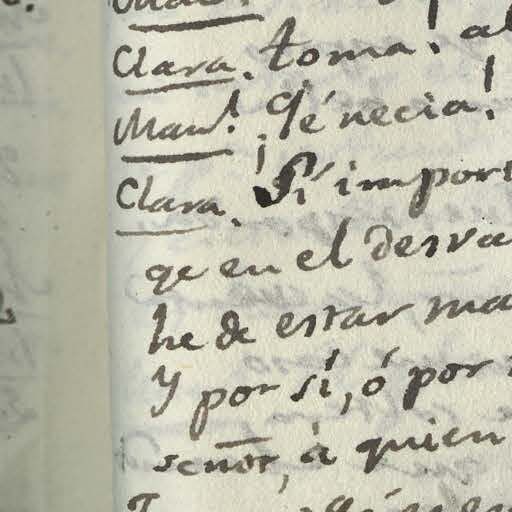 Clara. toma! al
Man.l ¡Qé necia!
Clara. Si impor
qe en el desva
he de estar ma
y por sí, ó por
señor, á quien